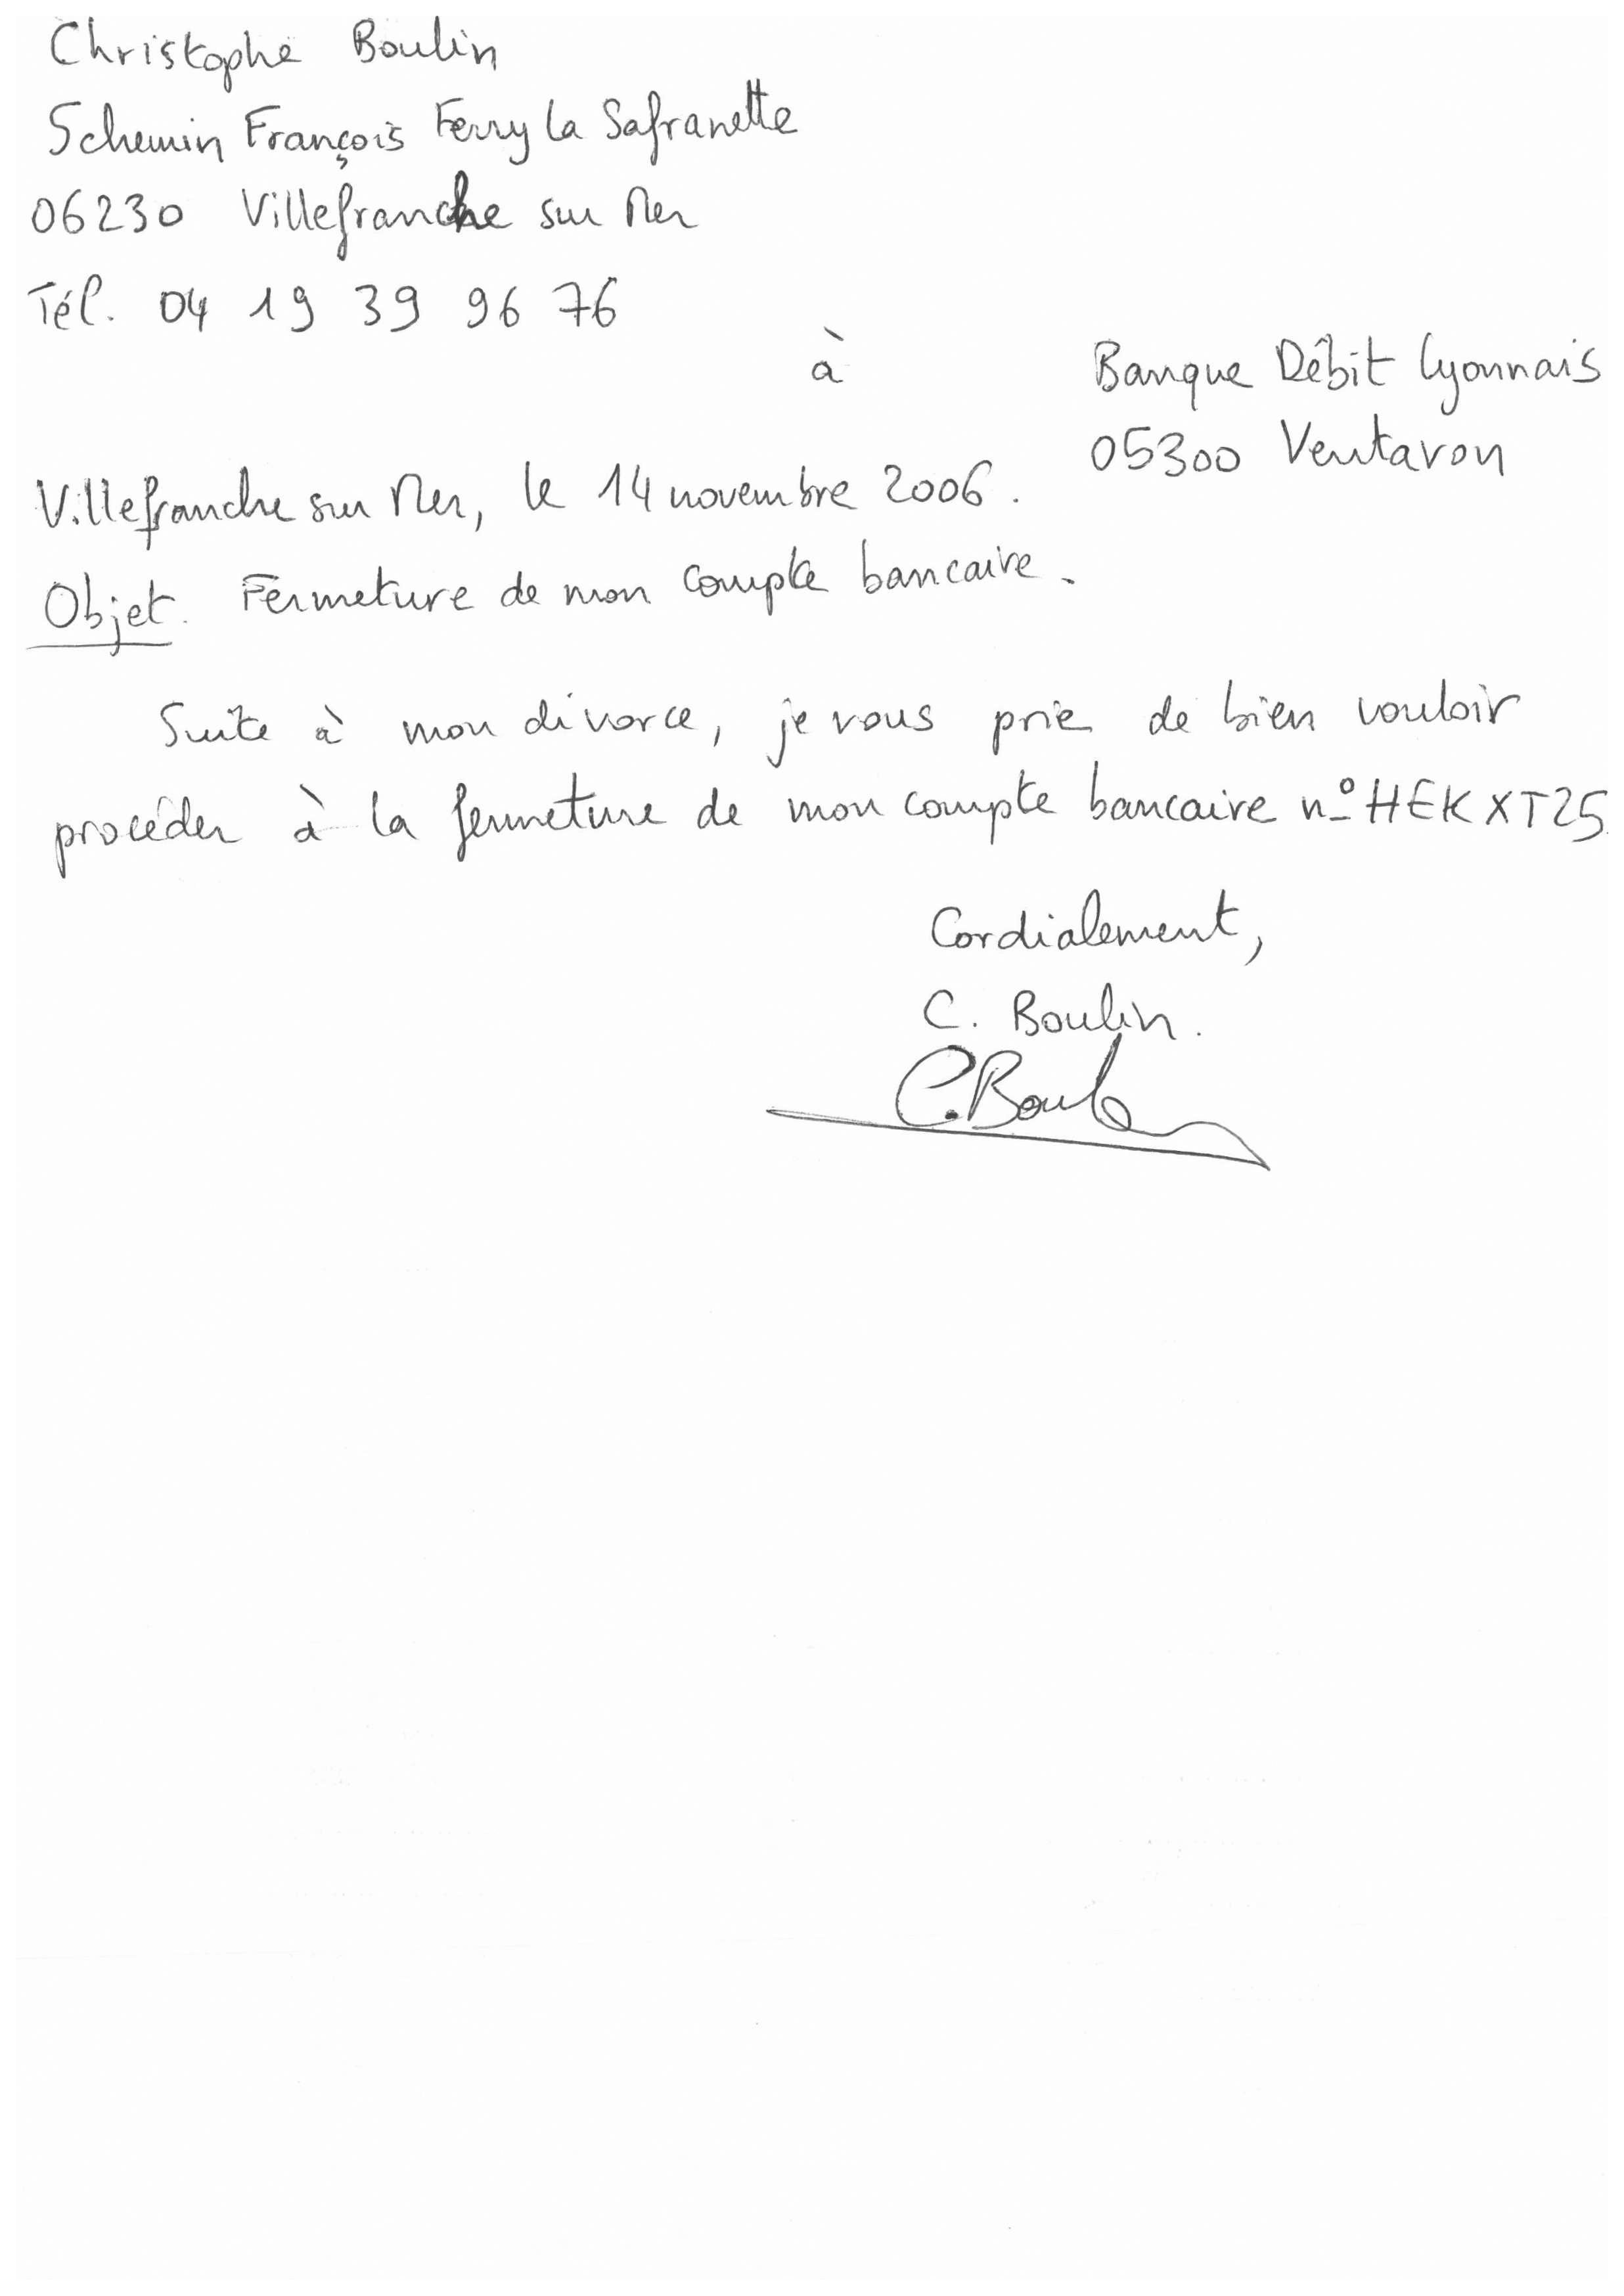 Christophe Boulin
5 chemin François Ferry la Safranette
06230 Villefranche sur Mer
Tél. 04 19 39 96 76
à
Banque Débit Lyonnais
05300 Ventavon
Villefranche sur Mer, le 14 novembre 2006.
Objet. Fermeture de mon compte bancaire.
Suite à mon divorce, je vous prie de bien vouloir
procéder à la fermeture de mon compte bancaire n° HEKXT25.
Cordialement,
C. Boulin.
C. Boulin